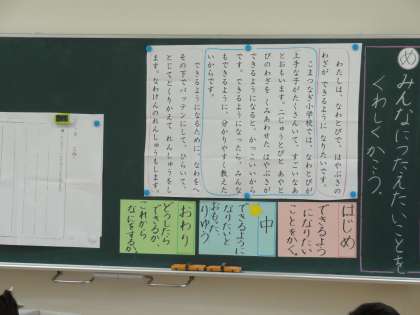 め
みんなにつたえたいことを
くわしくかこう。
わたしは、なわとびで、はやぶさの
わざが できるように なりたいです。
こまつなぎ小学校では、なわとびが
上手な子がたくさんいて、すごいなあ
とおもいます。二じゅうとびと あやと
びのわざを くみあわせた はやぶさが
できるようになると、かっこいいから
です。できるようになったら、みんな
もできるように、分かりやすく教えた
いからです。
できるようになるために、なわを
その下でバッテンにして、ひらいて、
とじてとくりかえて れんしゅうをし
ます。なわけんのれんしゅうもします。
はじめ
できるよう
になりたい
ことをかく。
中
できるように
なりたいと
おもった
りゆう
おわり
どうしたら
できるか、
これから
なにをするか。